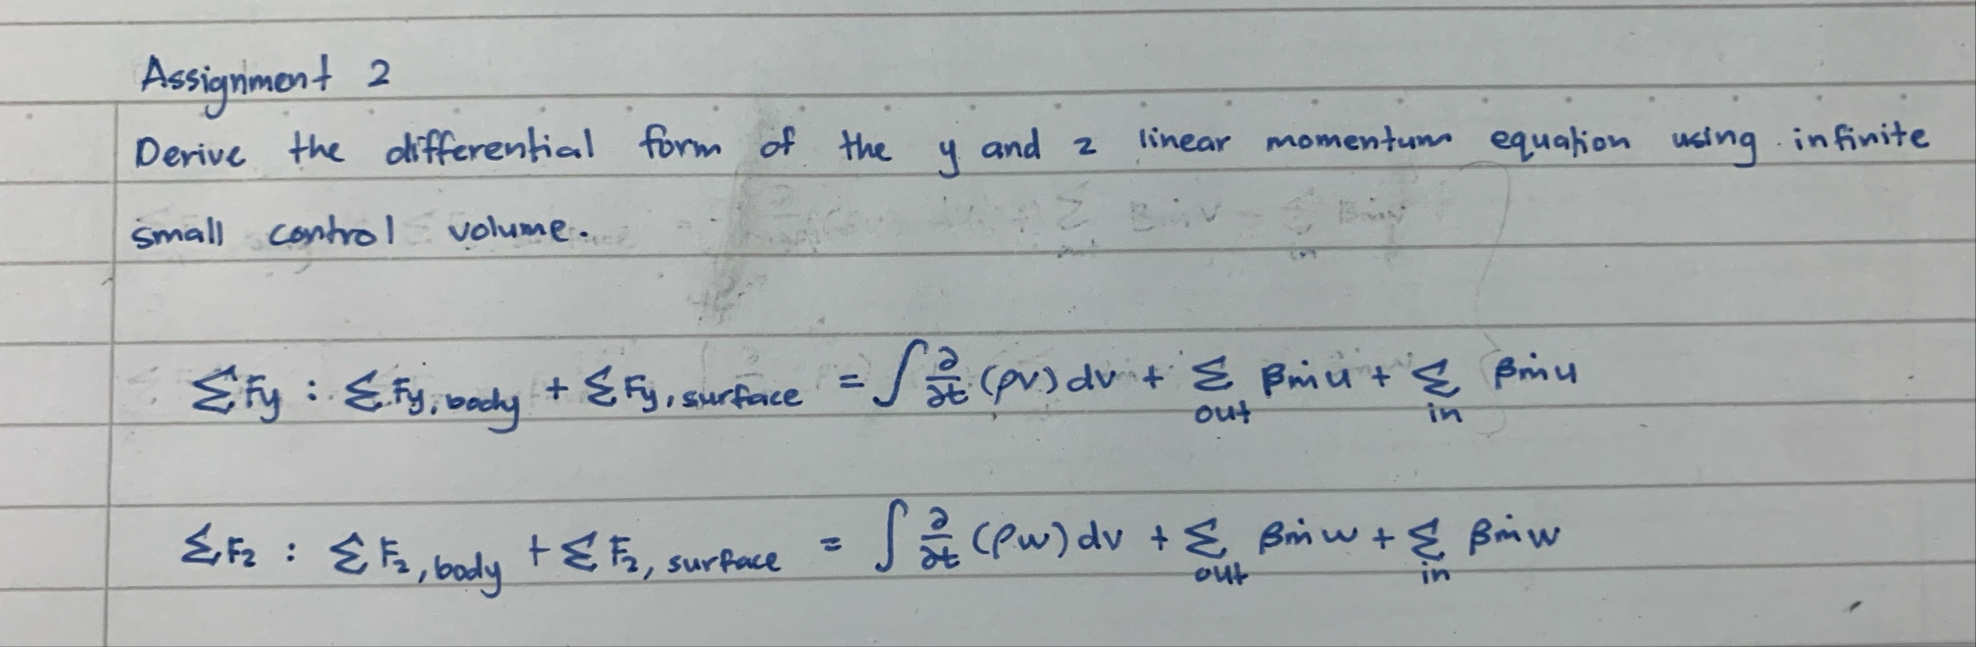 Assignment 2
Derive the differential form of the y and z linear momentum equation using infinite
small control volume.
ΣFy : ΣFy, body + ΣFy, surface = ∫ ∂/∂t (ρv) dv + Σ_out βṁu + Σ_in βṁu
ΣFz : ΣFz, body + ΣFz, surface = ∫ ∂/∂t (ρw) dv + Σ_out βṁw + Σ_in βṁw